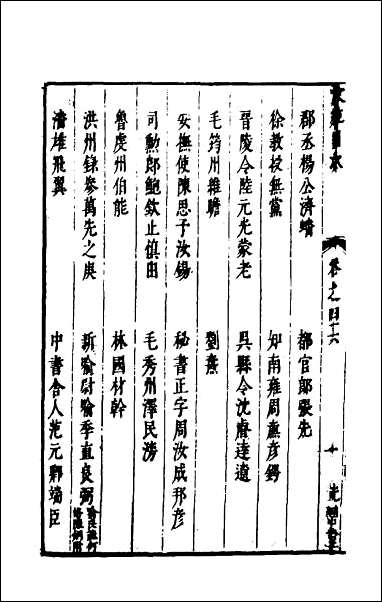 郡丞楊公濟蟠
都官郎張先
徐教授無黨
知南雍周燾彥鍔
晉陵令陸元光蒙老
吳縣令沈睿達遼
毛筠州維瞻
劉燾
安撫使陳思予汝錫
秘書正字周汝成邦彥
司勳郎鮑欽止慎由
毛秀州澤民滂
魯虔州伯能
林國材幹
洪州錄參萬先之庚
新喻尉喻季直良弼
潘雄飛翼
中書舍人范元卿端臣
卷之四十六